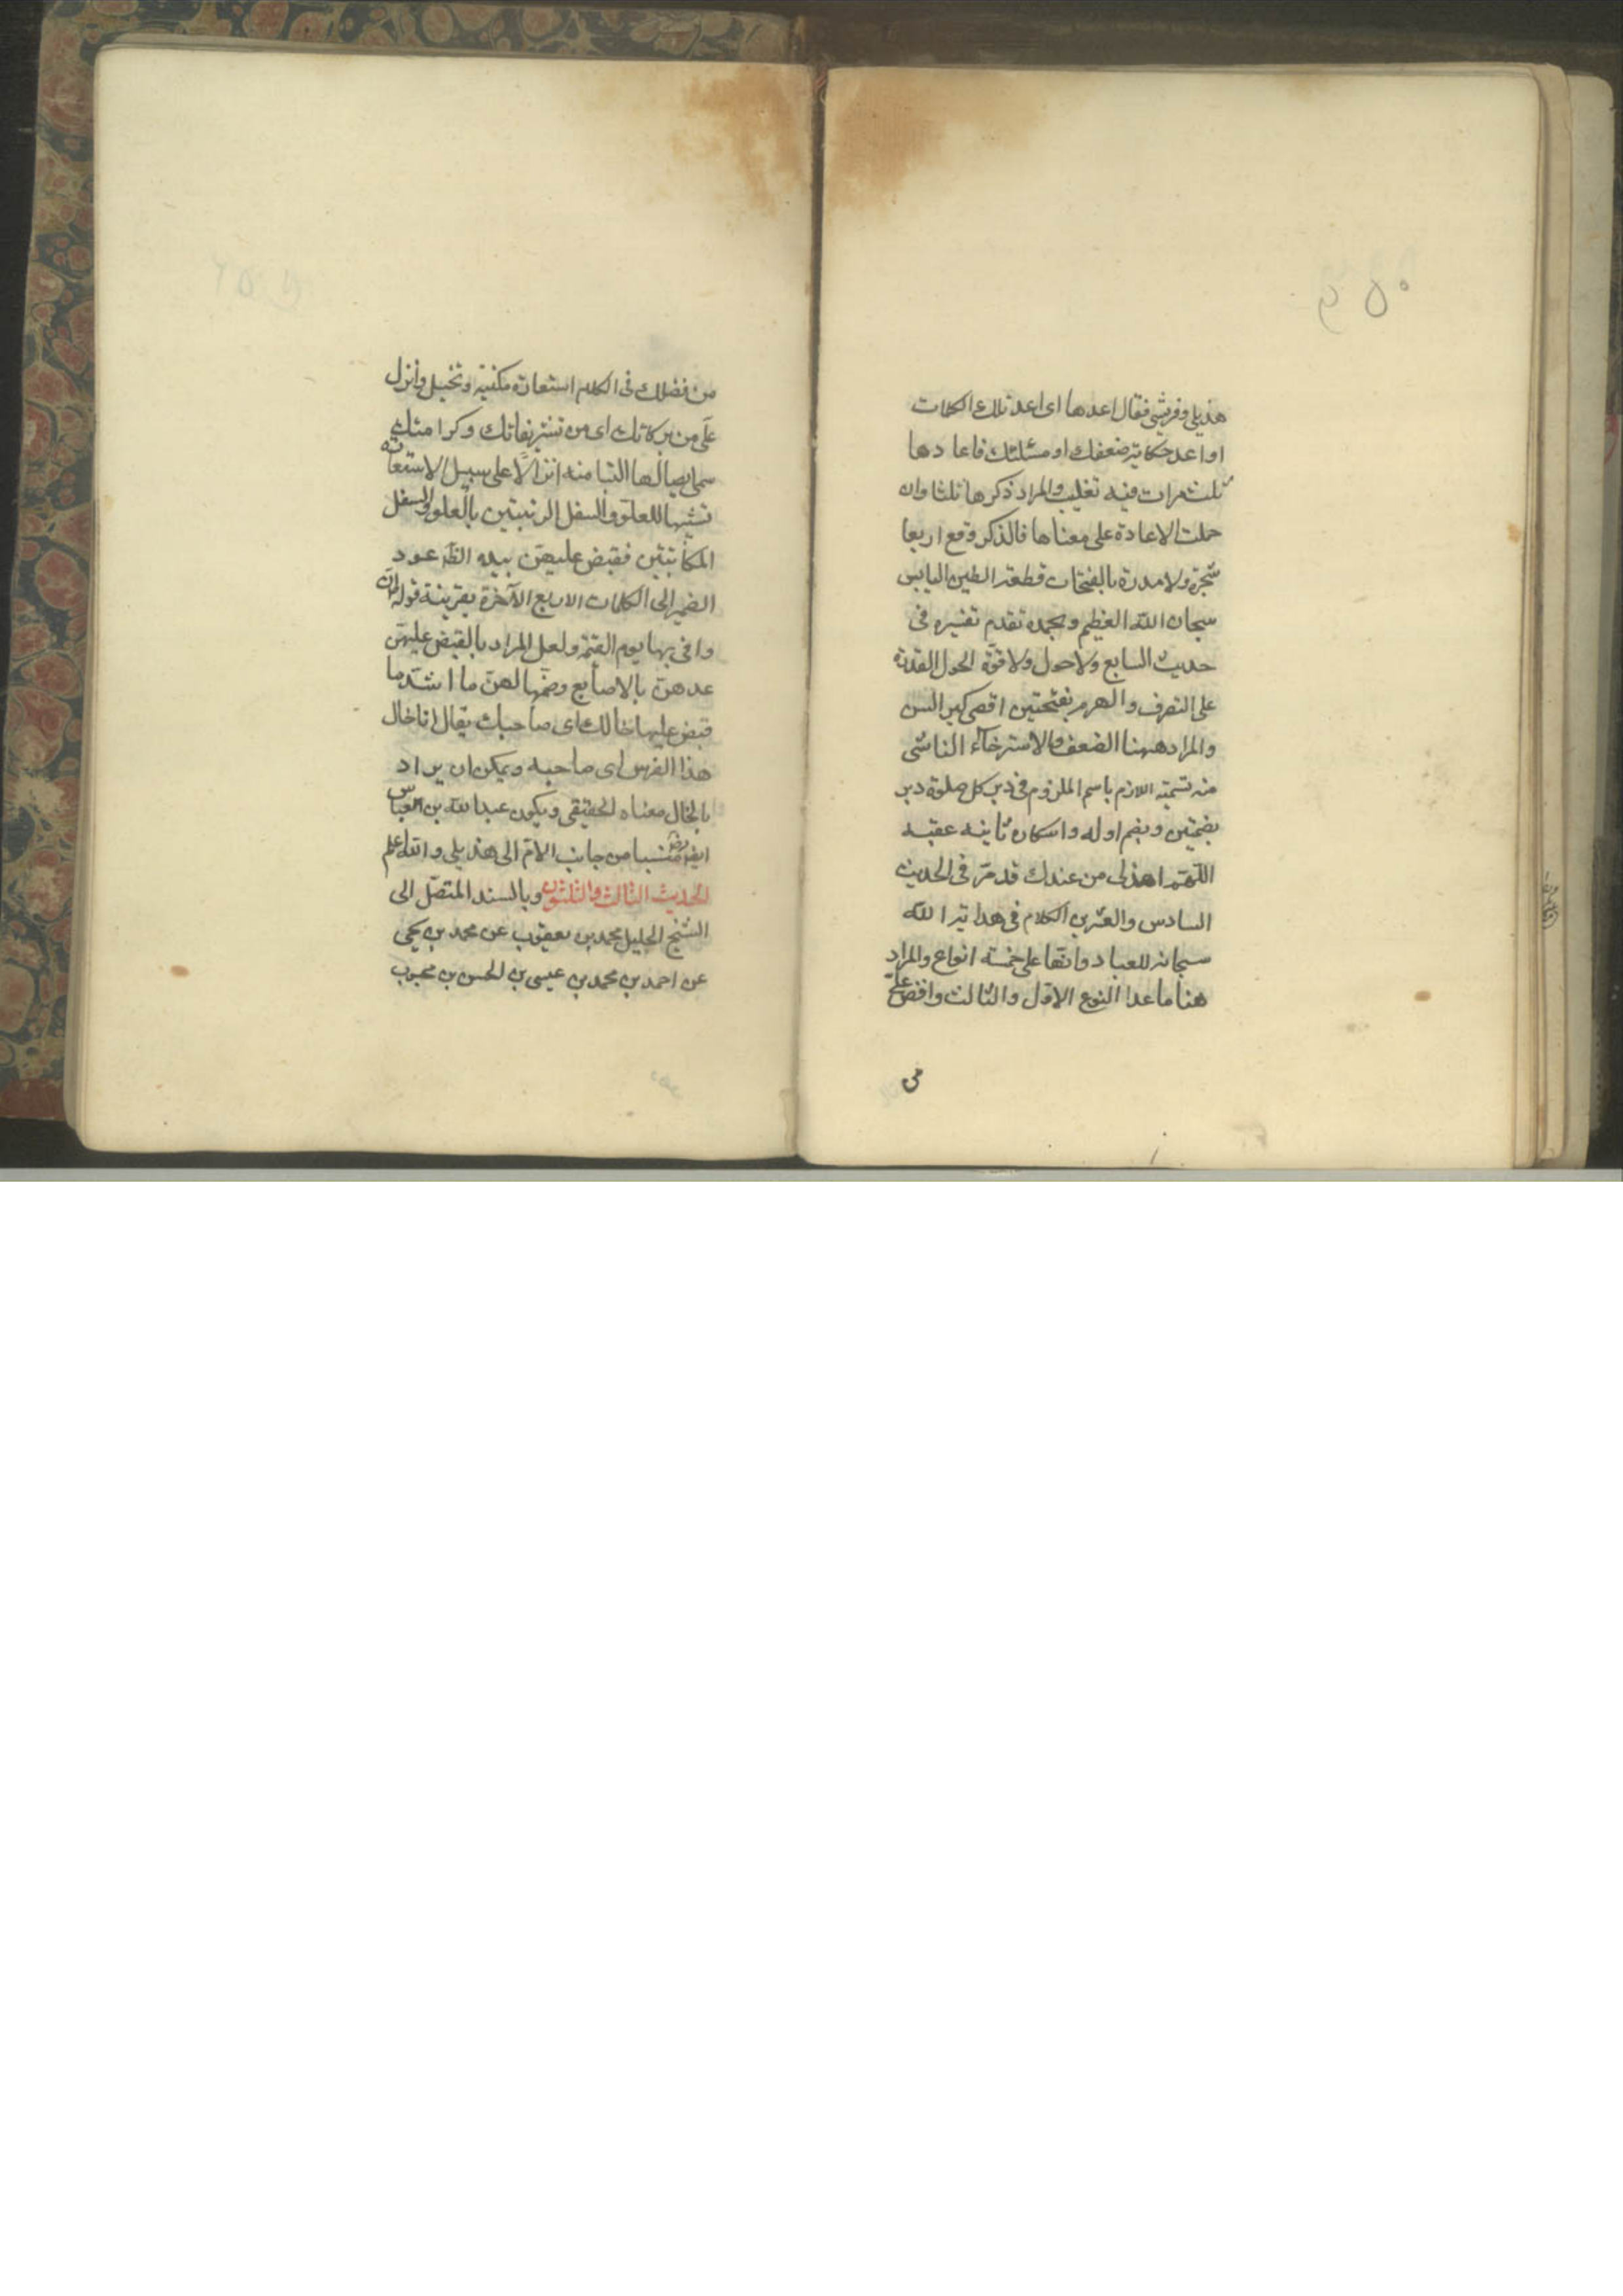 هذيلي وقريشي فقال اعدها اى اعد تلك الكلمات
او اعد حكاية ضعفك او مسئلتك فاعادها
ثلث مرات فيه تغليب والمراد ذكرها ثلثا وان
حملت الاعادة على معناها فالذكر وقع اربعا
شجرة ولا مدرة بالفتحات قطعة الطين اليابس
سبحان الله العظيم وبحمده تقدم تفسيره فى
حديث السابع ولا حول ولا قوّة الحول القدرة
على التصرف والهرم بفتحتين اقصى كبر السن
والمراد ههنا الضعف والاسترخاء الناشى
منه تسمية اللازم باسم الملزوم فى دبر كل صلوة دبر
بضمتين وبضم اوله واسكان ثانيه عقبه
اللّهمّ اهدنى من عندك قد مرّ فى الحديث
السادس والعشرين الكلام فى هداية الله
سبحانه للعباد وانها على خمسة انواع والمراد
هنا ما عدا النوع الاوّل والثالث وافض علىّ
من
من فضلك فى الكلام استعارة مكنية وتخييل وانزل
علىّ من بركاتك اى من تشريفاتك وكراماتك
سمى ايصالها الينا منه انزالاً على سبيل الاستعارة
تشبيها للعلو والسفل الرتبيين بالعلو والسفل
المكانيين فقبض عليهنّ بيده الظ عود
الضمير الى الكلمات الاربع الآخرة بقرينة قوله ان
وافى بها يوم القيمة ولعل المراد بالقبض عليهنّ
عدهنّ بالاصابع وضمها لهنّ ما اشدّ ما
قبض عليها خالك اى صاحبك يقال انا خال
هذا الفرس اى صاحبه ويمكن ان يراد
بالخال معناه الحقيقى ويكون عبد الله بن العباس
منتسبا من جانب الامّ الى هذيلى والله اعلم
الحديث الثالث والثلثون وبالسند المتصّل الى
الشيخ الجليل محمد بن يعقوب عن محمد بن يحيى
عن احمد بن محمد بن عيسى بن الحسن بن محبوب